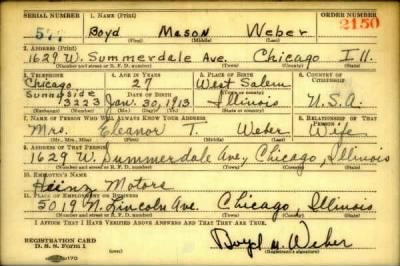 SERIAL NUMBER 1. NAME (Print) ORDER NUMBER
577 Boyd Mason Weber 2150
(First) (Middle) (Last)
2. ADDRESS (Print)
1629 W. Summerdale Ave. Chicago Ill.
(Number and street or R. F. D. number) (Town) (County) (State)
3. TELEPHONE 4. AGE IN YEARS 5. PLACE OF BIRTH 6. COUNTRY OF CITIZENSHIP
Chicago 27 West Salem
Sunnyside DATE OF BIRTH (Town or county)
3223 Jan. 30, 1913. Illinois U.S.A.
(Exchange) (Number) (Mo.) (Day) (Yr.) (State or country)
7. NAME OF PERSON WHO WILL ALWAYS KNOW YOUR ADDRESS 8. RELATIONSHIP OF THAT PERSON
Mrs. Eleanor T. Weber Wife
(Mr., Mrs., Miss) (First) (Middle) (Last)
9. ADDRESS OF THAT PERSON
1629 W. Summerdale Ave, Chicago, Illinois
(Number and street or R. F. D. number) (Town) (County) (State)
10. EMPLOYER'S NAME
Heinz Motors
11. PLACE OF EMPLOYMENT OR BUSINESS
5019 N. Lincoln Ave. Chicago, Illinois.
(Number and street or R. F. D. number) (Town) (County) (State)
I AFFIRM THAT I HAVE VERIFIED ABOVE ANSWERS AND THAT THEY ARE TRUE.
REGISTRATION CARD
D. S. S. Form 1 Boyd M. Weber
(Registrant's signature)